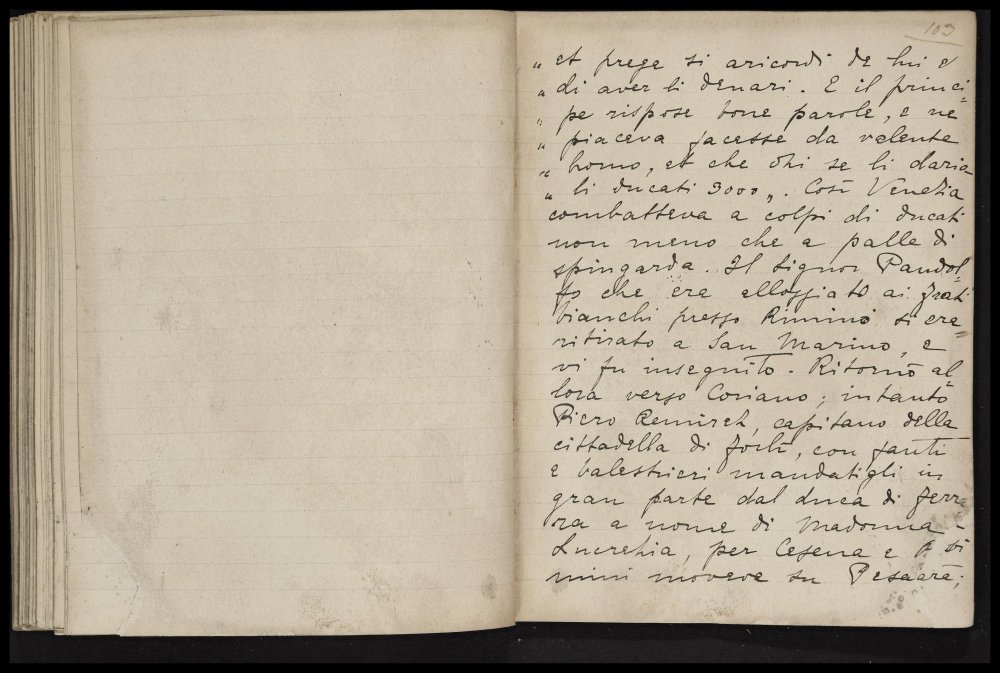 103
„ et prege si aricordi de lui e
„ di aver li denari. E il princi-
„ pe rispose bone parole, e ne
„ piaceva facesse da valente
„ homo, et che chi se li daria
„ li ducati 3000 „. Così Venezia
combatteva a colpi di ducati
non meno che a palle di
spingarda. Il signor Pandol-
fo che era alloggiato ai frati
bianchi presso Rimini si era
ritirato a San Marino, e
vi fu inseguito. Ritornò al-
lora verso Coriano; intanto
Piero Remires, capitano della
cittadella di Forlì, con fanti
e balestrieri mandatigli in
gran parte dal duca di Ferra
ra a nome di Madonna
Lucrezia, per Cesena e Ri
mini moveva su Pesaro;